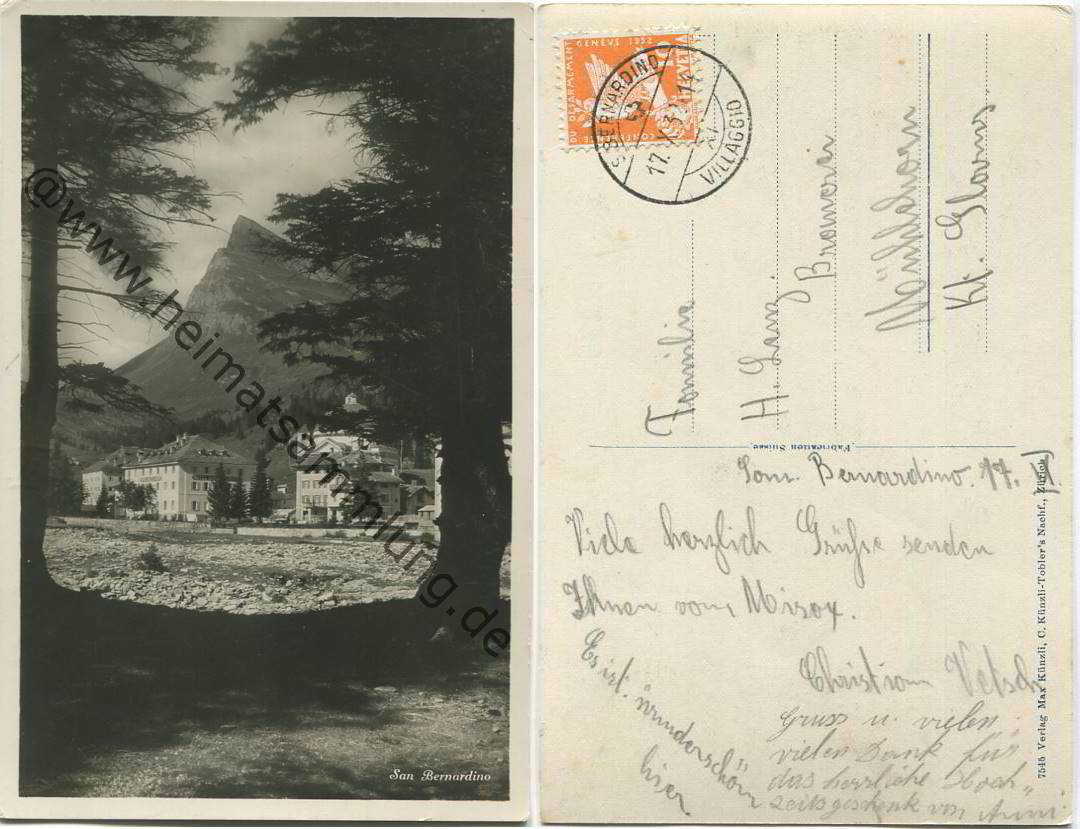 @www.heimatsammlung.de
San Bernardino
CONFERENCE DU DESARMEMENT GENEVE 1932
HELVETIA
S. BERNARDINO
17.
VILLAGGIO
Familia
H. Lanz
Bromerei
Mühlehorn
Kt. Glarus
Fabrication Suisse.
San. Bernardino. 17. VI.
Viele herzlich Grüsse senden
Ihnen vom Misox.
Christian Vetsch
Es ist wunderschön
hier
Gruss u. vielen
vielen Dank für
das herrliche Hoch„
zeitsgeschenk von Anni
7545 Verlag Max Künzli, C. Künzli-Tobler's Nachf., Zürich